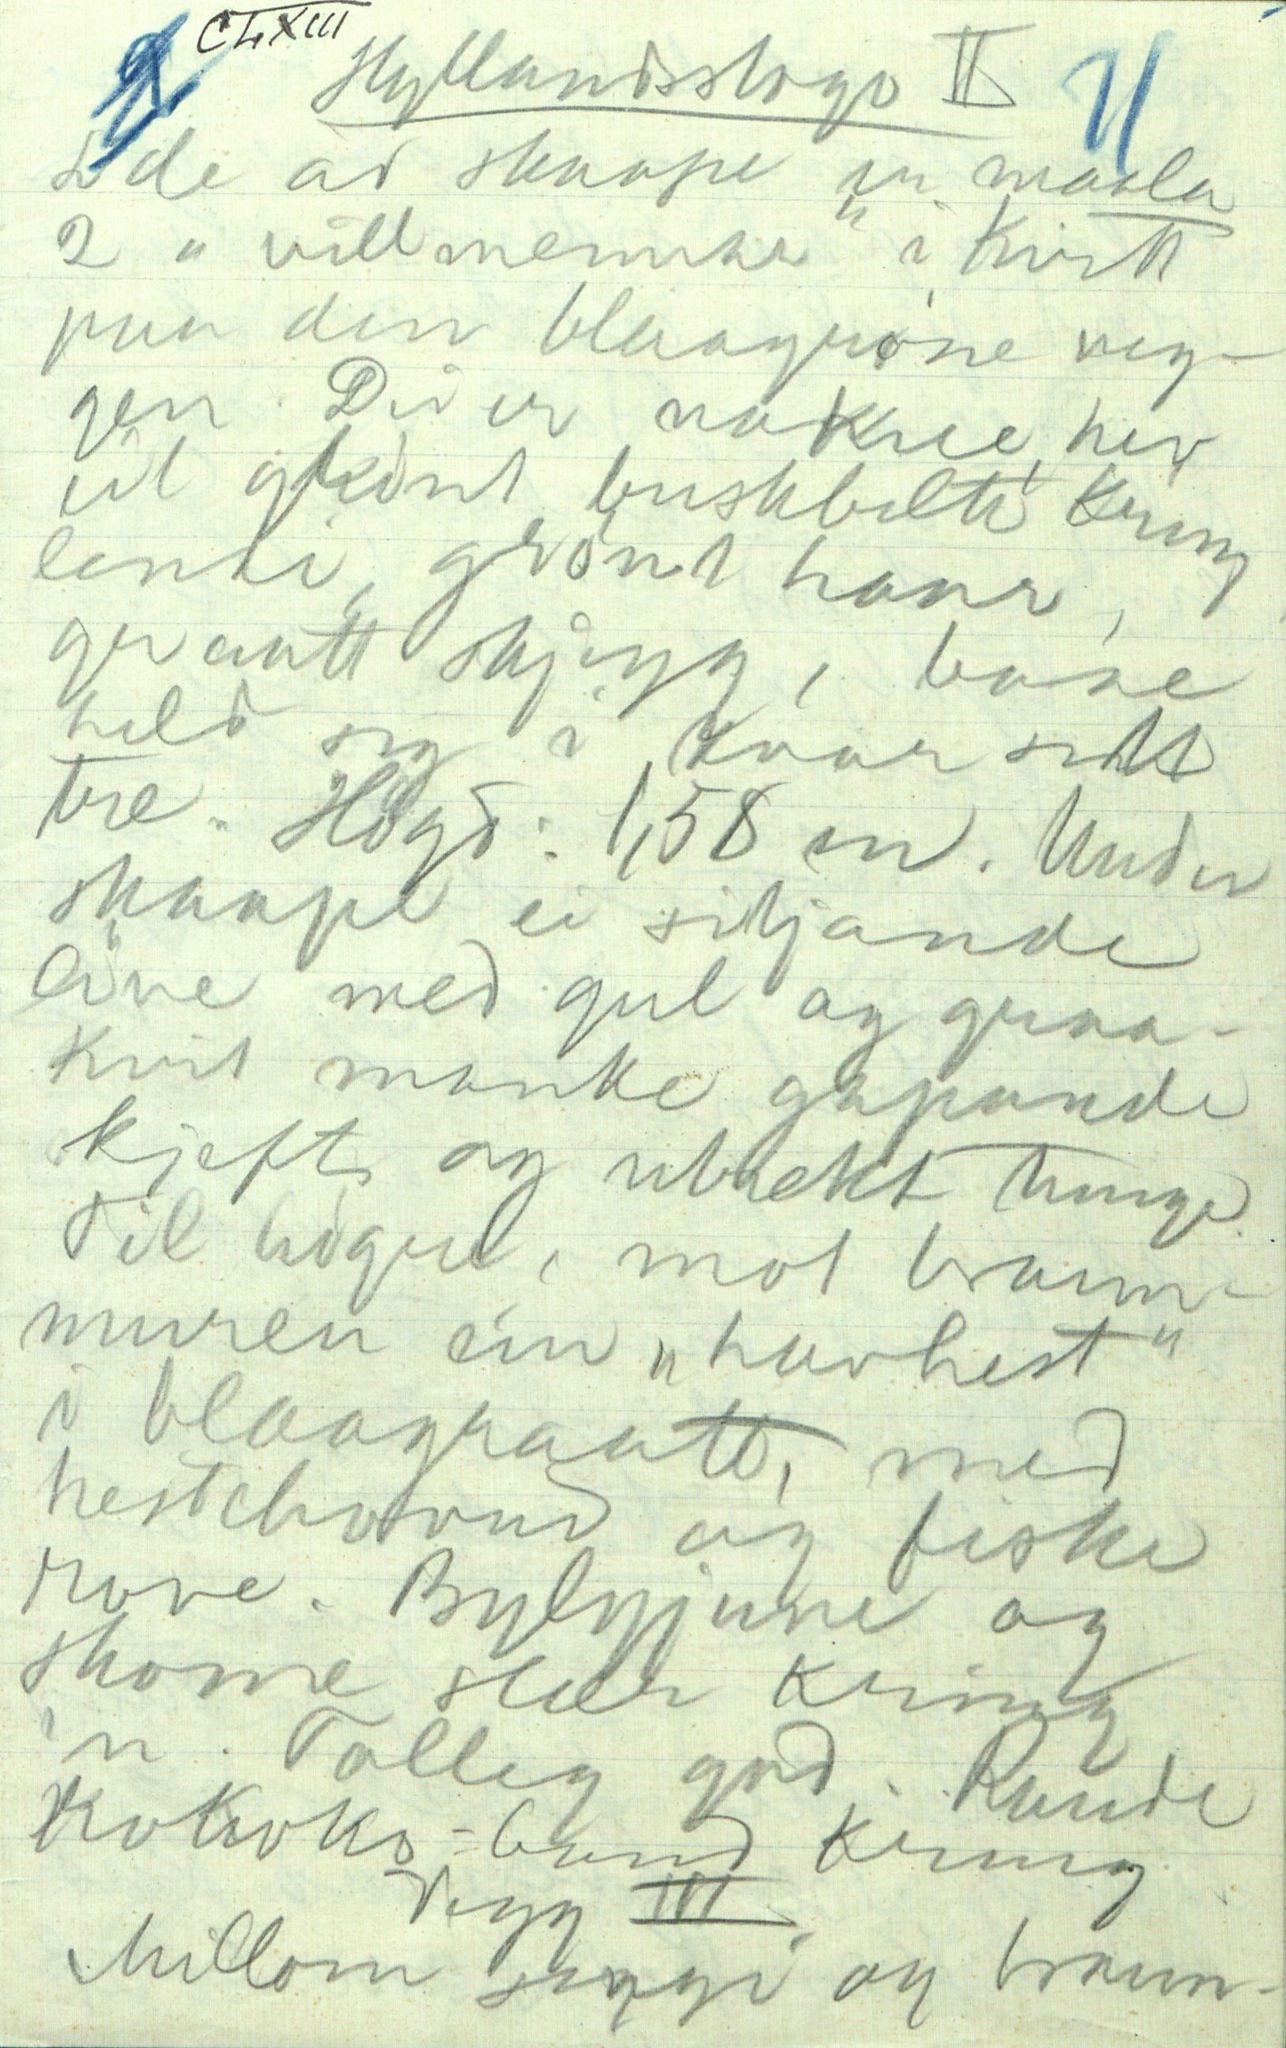 CLXIII
Hyllandsstogo II
2 "villmennska" i kvitt
paa den blaagrøne veg-
gen. Dei er nakne, hev
eit grønt buskbelte kring
lenki, grønt haar,
graatt skjegg, baae
held seg i kvar sitt
tre. Høgd: 1,58 m. Under
skaape ei sitjande
løve med gul og graa-
kvit manke gapande
kjeft og utrekt tunge.
Til høgre, mot braum-
muren ein "havhest"
i blaagraatt, med
hestehovud og fiske
rove. Bylgjune og
skome slær kring
'n. Tolleg god. Raude
krokoko-band kring
Vegg III.
Millom sengi og braum-